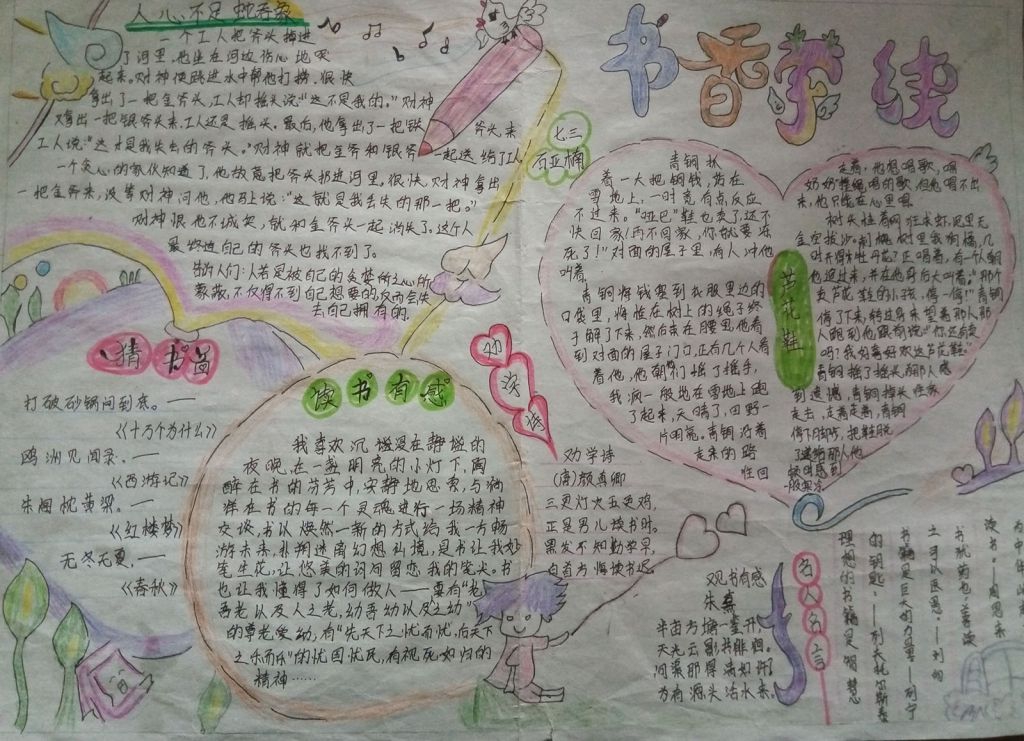 人心不足蛇吞象
一个工人把斧头掉进
了河里,他坐在河边伤心地哭
起来。财神便跳进水中帮他打捞,很快
拿出了一把金斧头,工人却摇头说:“这不是我的。”财神
又拿出一把银斧头来,工人还是摇头。最后,他拿出了一把铁斧头来
工人说:“这才是我失去的斧头。”财神就把金斧和银斧一起送给了工人
一个贪心的家伙知道了,他故意把斧头扔进河里,很快,财神拿出
一把金斧来,没等财神问他,他马上说:“这就是我丢失的那一把。”
财神恨他不诚实,就和金斧头一起消失了。这个人
最终连自己的斧头也找不到了。
告诉人们:人若是被自己的贪婪所
蒙蔽,不仅得不到自己想要的,反而会失
去自己拥有的。
七三
石亚楠
书香季线
猜书名
打破砂锅问到底。——
《十万个为什么》
鸥洲见闻录。——
《西游记》
朱阁枕黄梁。——
《红楼梦》
无冬无夏。——
《春秋》
读书有感
我喜欢沉溺没在静谧的
夜晚,在一盏明亮的小灯下,陶
醉在书的芬芳中,安静地思索,与徜
徉在书的每一个灵魂进行一场精神
交谈,书以焕然一新的方式给我一方畅
游未来,扑朔迷离幻想仙境,是书让我妙
笔生花,让悠美的词句留恋我的笔尖。书
也让我懂得了如何做人——要有“老
吾老以及人之老,幼吾幼以及之幼”
的尊老爱幼,有“先天下之忧而忧,后天下
之乐而乐”的忧国忧民,有视死如归的
精神……
劝学诗
劝学诗
(唐)颜真卿
三更灯火五更鸡,
正是男儿读书时。
黑发不知勤学早,
白首方悔读书迟。
观书有感
朱熹
半亩方塘一鉴开,
天光云影共徘徊。
问渠那得清如许?
为有源头活水来
芦花鞋
青铜抓
着一大把钢钱,站在
雪地上,一时竟有点反应
不过来。“哑巴”鞋也卖了,还不
快回家!再不回家,你就要冻
死了!”对面的屋子里,有人冲他
叫着。
青铜将钱塞到衣服里边的
口袋里,将拴在树上的绳子终
于解了下来,然后束在腰里,他看
到对面的屋子门口,正有几个人看
着他,他朝他们摇了摇手,
我疯一般地在雪地上跑
了起来,天晴了,田野一
片明亮。青铜沿着
走来的路
往回
走着,他想唱歌,唱
奶奶唱的歌,但他唱不出
来,他只能在心里唱
停了下来,转过身来望着那人,那
人跑到他跟前说:“你还有卖
吗?我的喜好欢这芦花鞋。”
青铜摇了摇头,那人感
到遗憾,青铜掉头往家
走去,走着走着,青铜
停下脚步,把鞋脱
了递给那人他
名人名言
读书。——周恩来
书犹药也,善读
之可以医愚。——刘向
书籍是巨大的力量。——列宁
理想的书籍是智慧
的钥匙。——列夫托尔斯泰